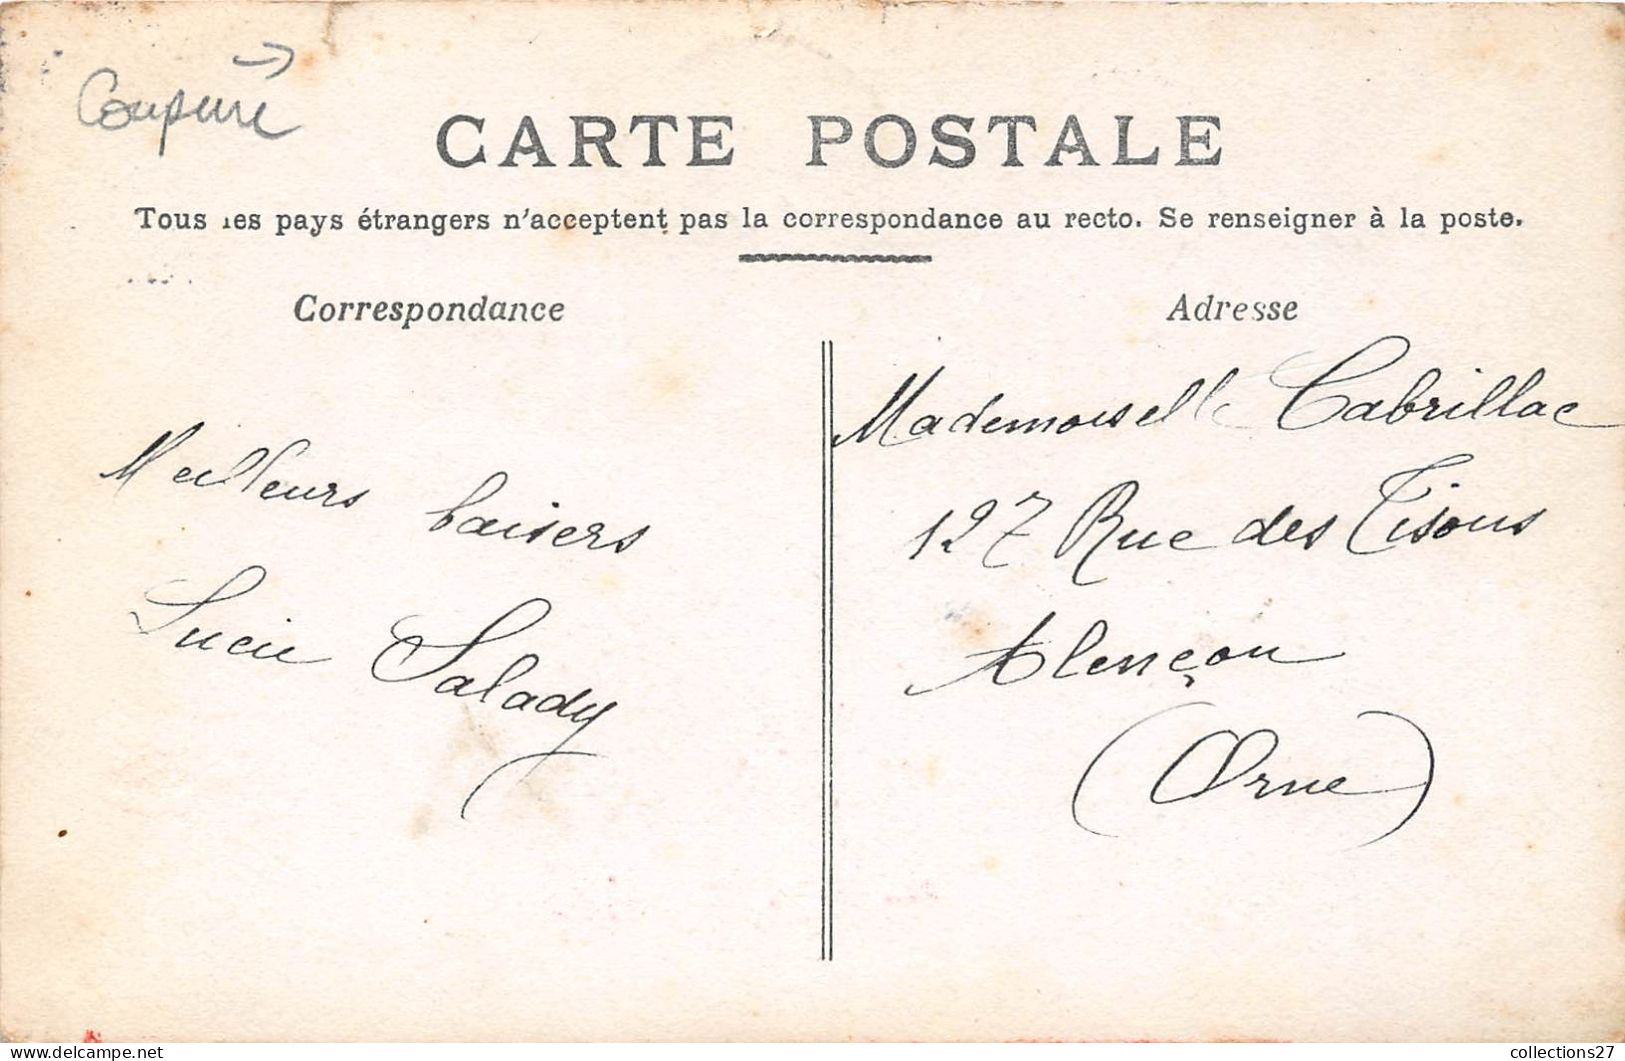 Coupure
CARTE POSTALE
Tous les pays étrangers n'acceptent pas la correspondance au recto. Se renseigner à la poste.
Correspondance
Meilleurs baisers
Lucie Salady
Adresse
Mademoiselle Cabrillac
127 Rue des Tisons
Alençon
(Orne)
collections27